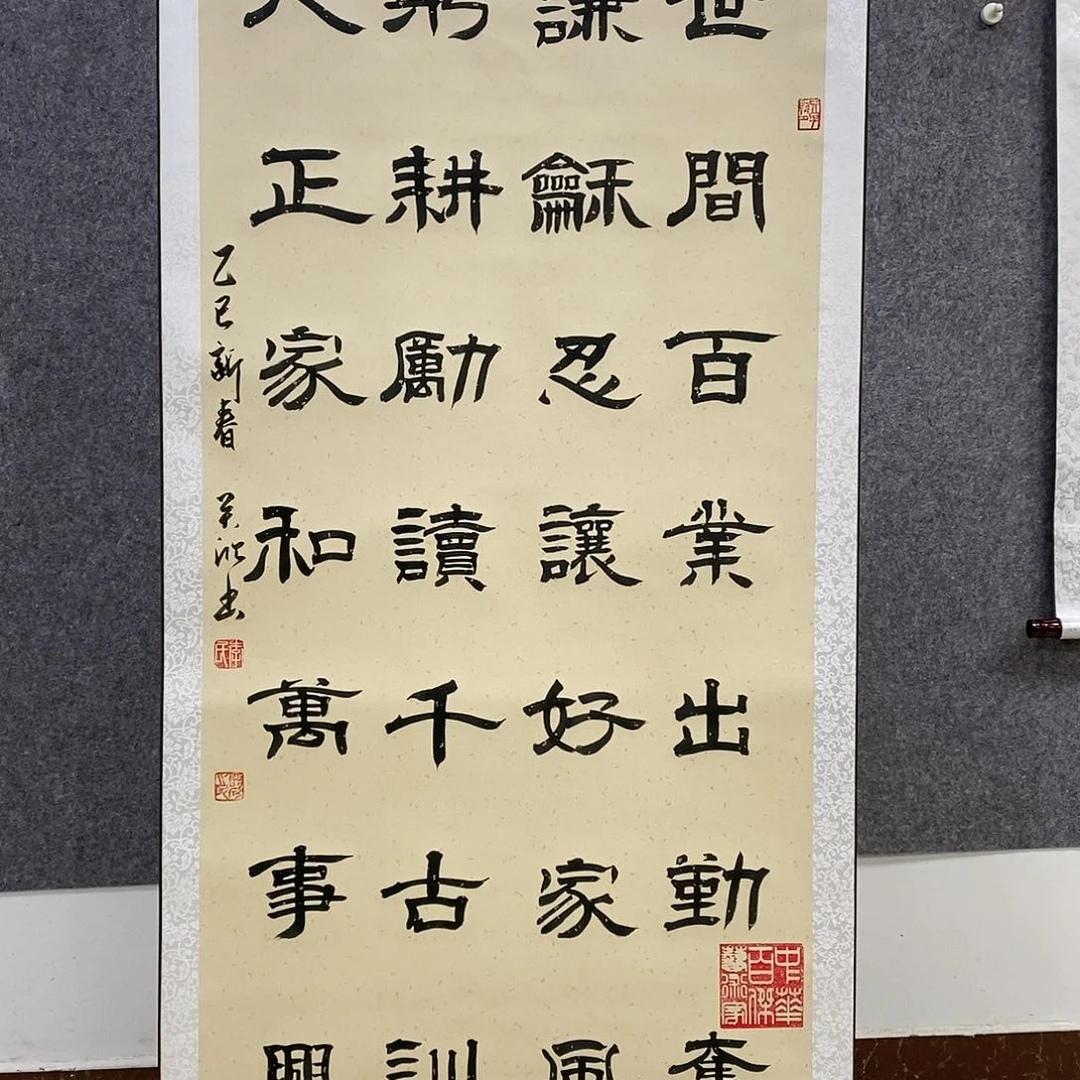 世間百業出勤奮
謙龢忍讓好家風
躬耕勵讀千古訓
人正家和萬事興
乙巳新春
書
中華百傑藝術家